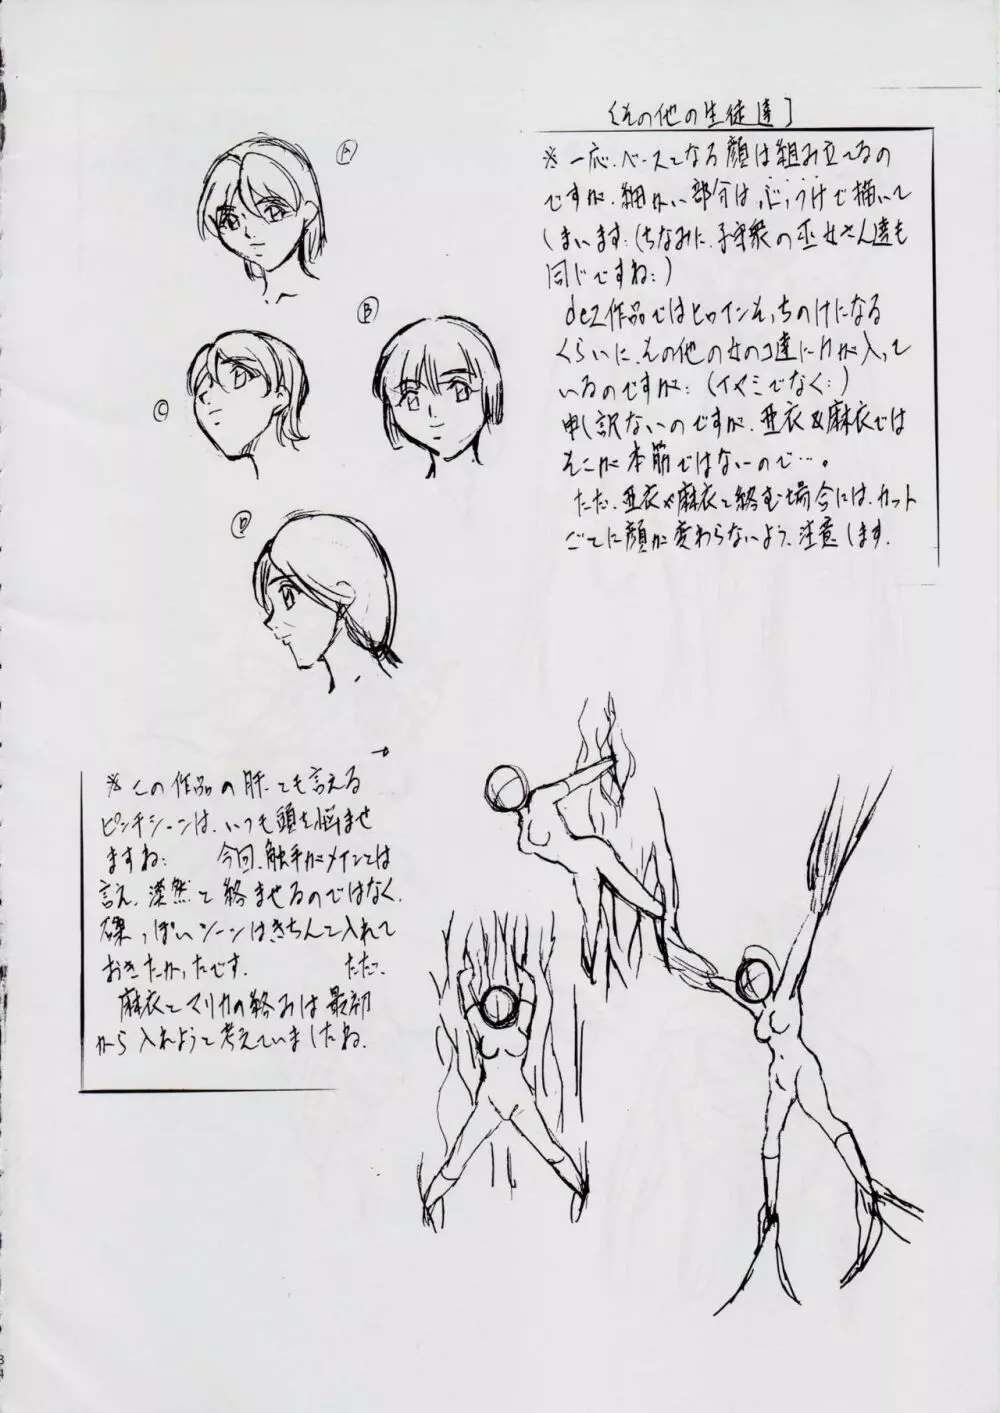 〔その他の生徒達〕
※一応、ベースとなる顔は組み立てるの
ですが、細かい部分は、ぶっつけで描いて
しまいます:(ちなみに、子守衆の巫女さん達も
同じですね:)
dez作品ではヒロインそっちのけになる
くらいに、その他の女のコ達に力が入って
いるのですが:(イヤミでなく:)
申し訳ないのですが、亜衣&麻衣では
そこが本筋ではないので…。
ただ、亜衣や麻衣と絡む場合には、カット
ごとに顔が変わらないよう、注意します.
A
B
C
D
※この作品の肝とも言える
ピンチシーンは、いつも頭を悩ませ
ますね: 今回、触手がメインとは
言え、漠然と絡ませるのではなく、
磔っぽいシーンはきちんと入れて
おきたかったです. ただ、
麻衣とマリカの絡みは最初
から入れようと考えていましたね.
84